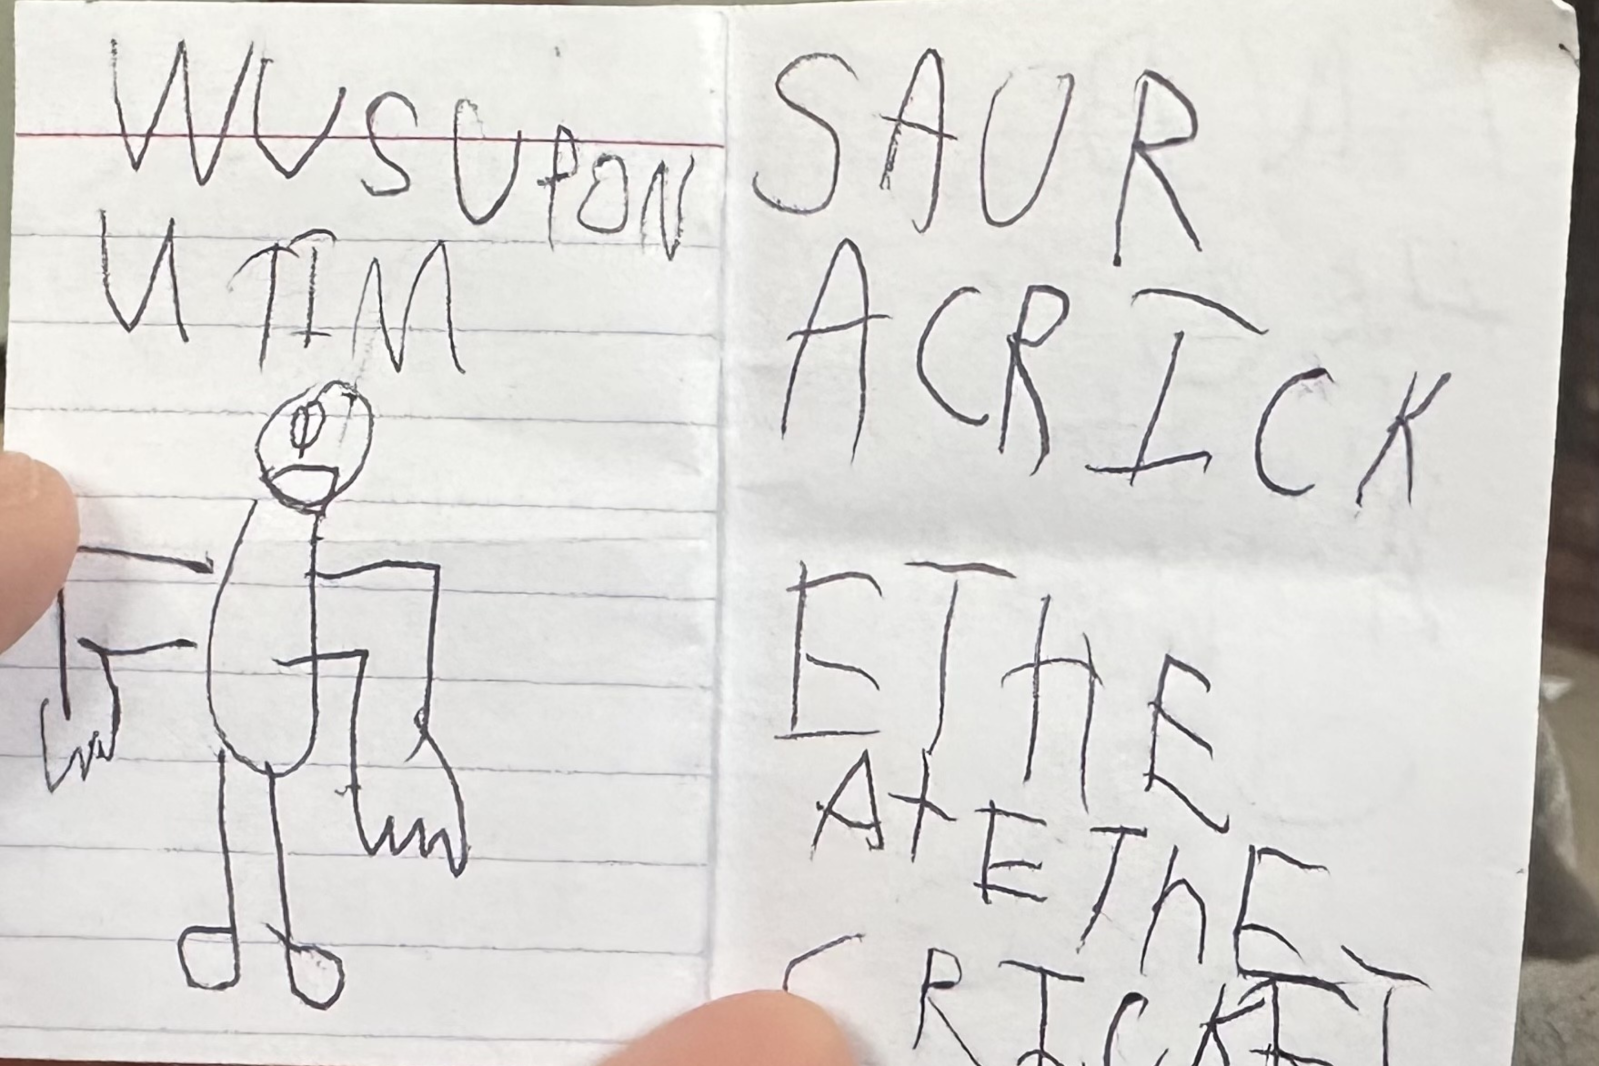 WUS UPON
U TIM
SAUR
ACRICK
ETHE
AtE ThE
CRICKET